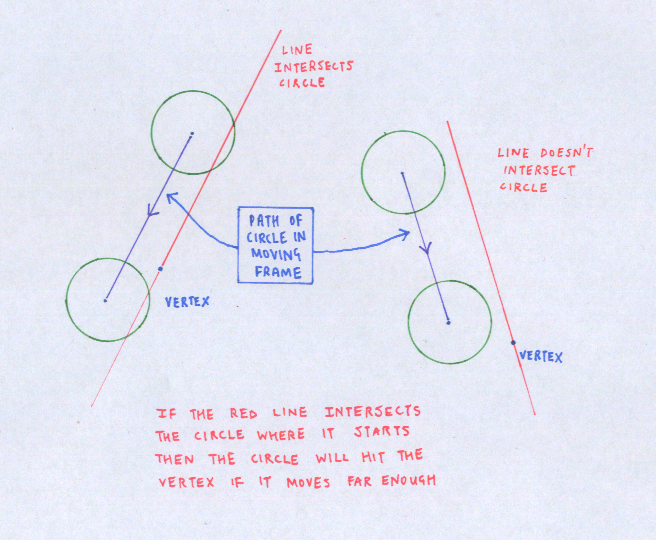 LINE
INTERSECTS
CIRCLE
LINE DOESN'T
INTERSECT
CIRCLE
PATH OF
CIRCLE IN
MOVING
FRAME
VERTEX
VERTEX
IF THE RED LINE INTERSECTS
THE CIRCLE WHERE IT STARTS
THEN THE CIRCLE WILL HIT THE
VERTEX IF IT MOVES FAR ENOUGH